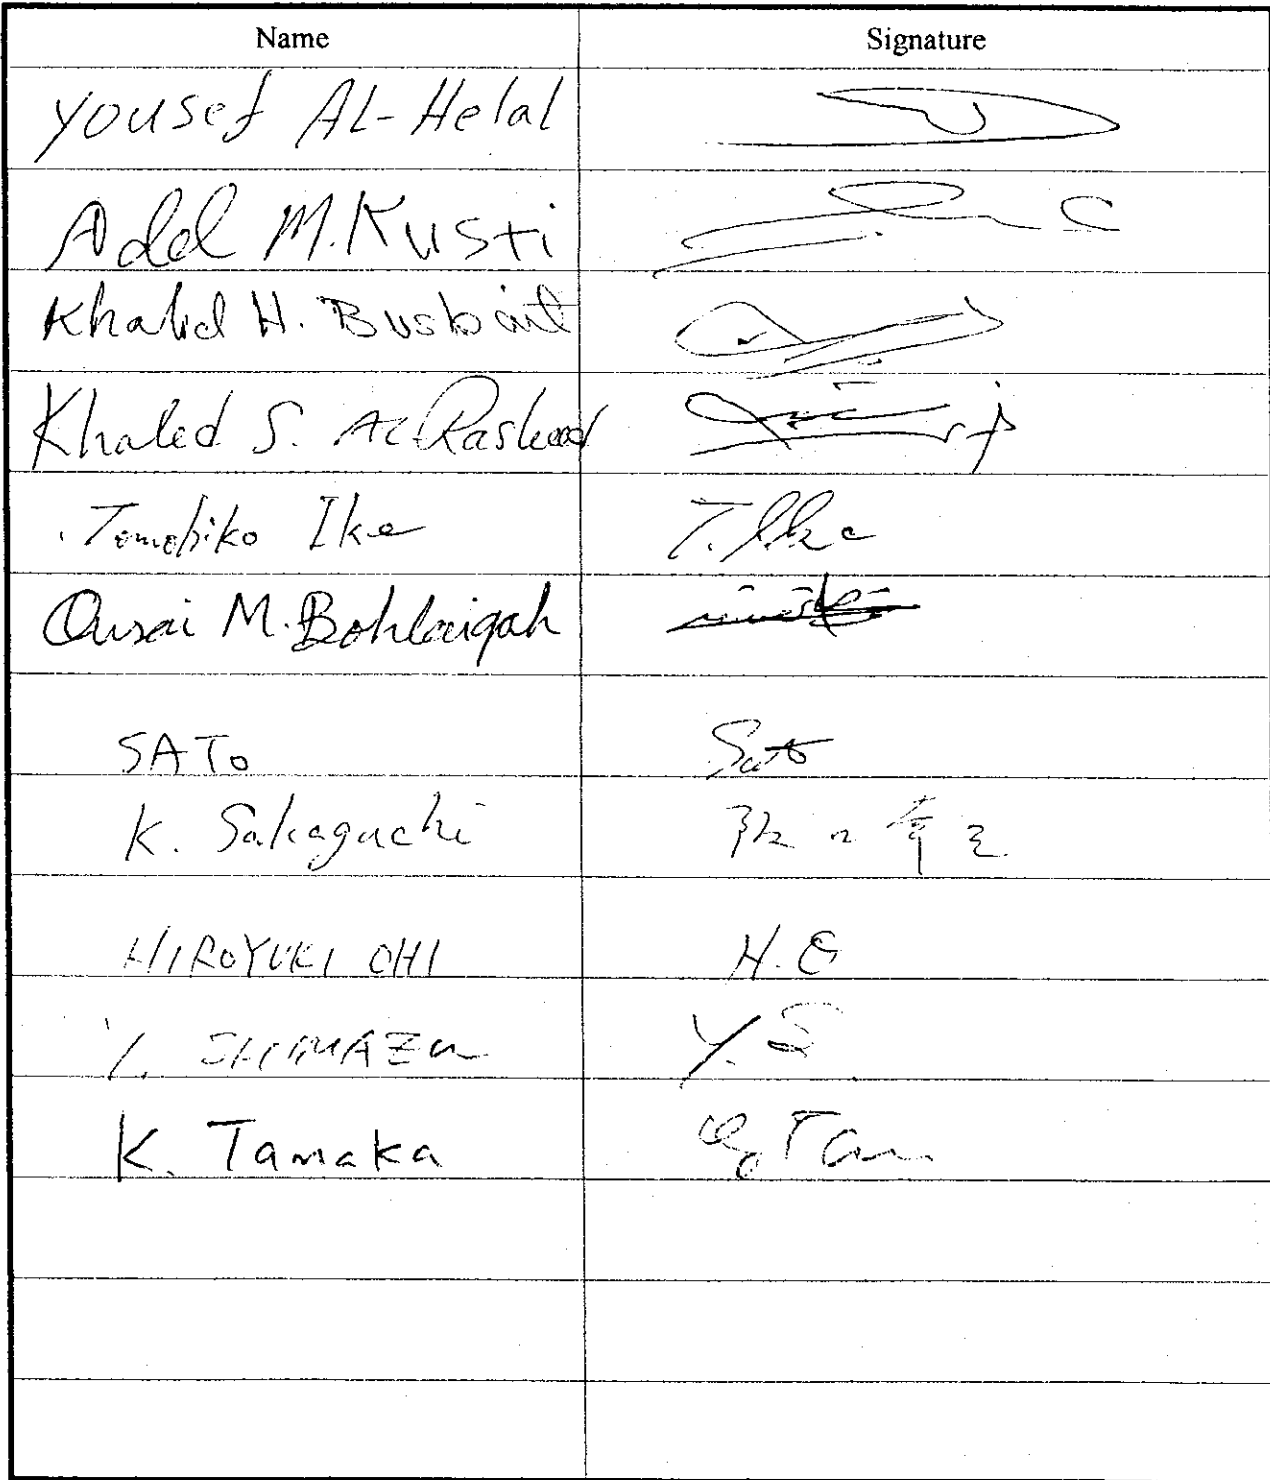 Name Signature
Yousef AL-Helal
Adel M. Kusti
Khalid H. Busbait
Khaled S. Al-Rasheed
Tomohiko Ike T. Ike
Qusai M. Bohlaigah
SATO Sato
K. Sakaguchi 阪口幸之
HIROYUKI OHI H. O
Y. SHIMAZU Y. S
K. Tanaka Tan